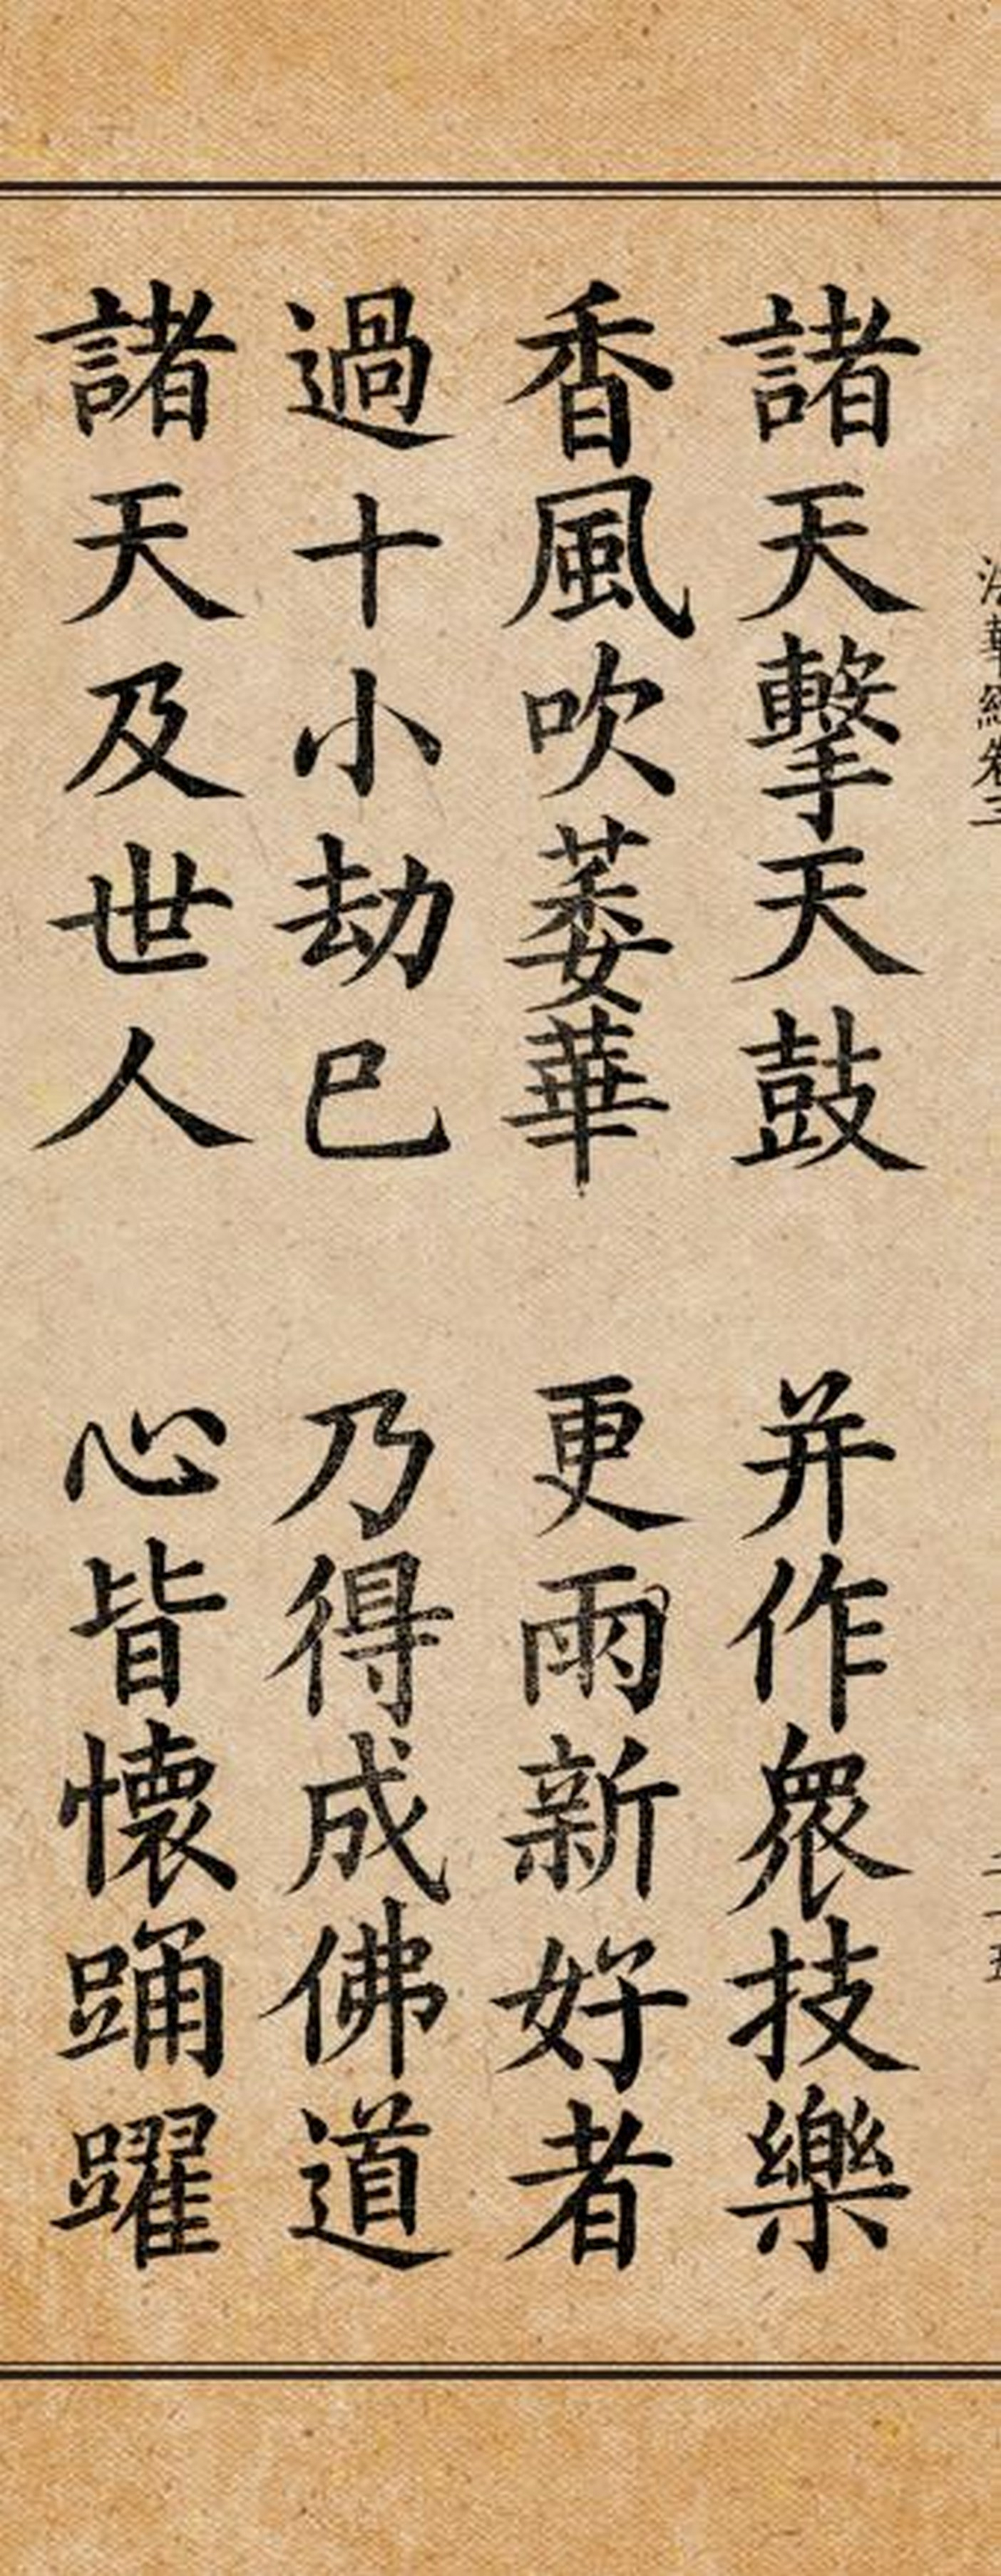 法華經卷三
諸天擊天鼓　并作眾技樂
香風吹萎華　更雨新好者
過十小劫已　乃得成佛道
諸天及世人　心皆懷踊躍